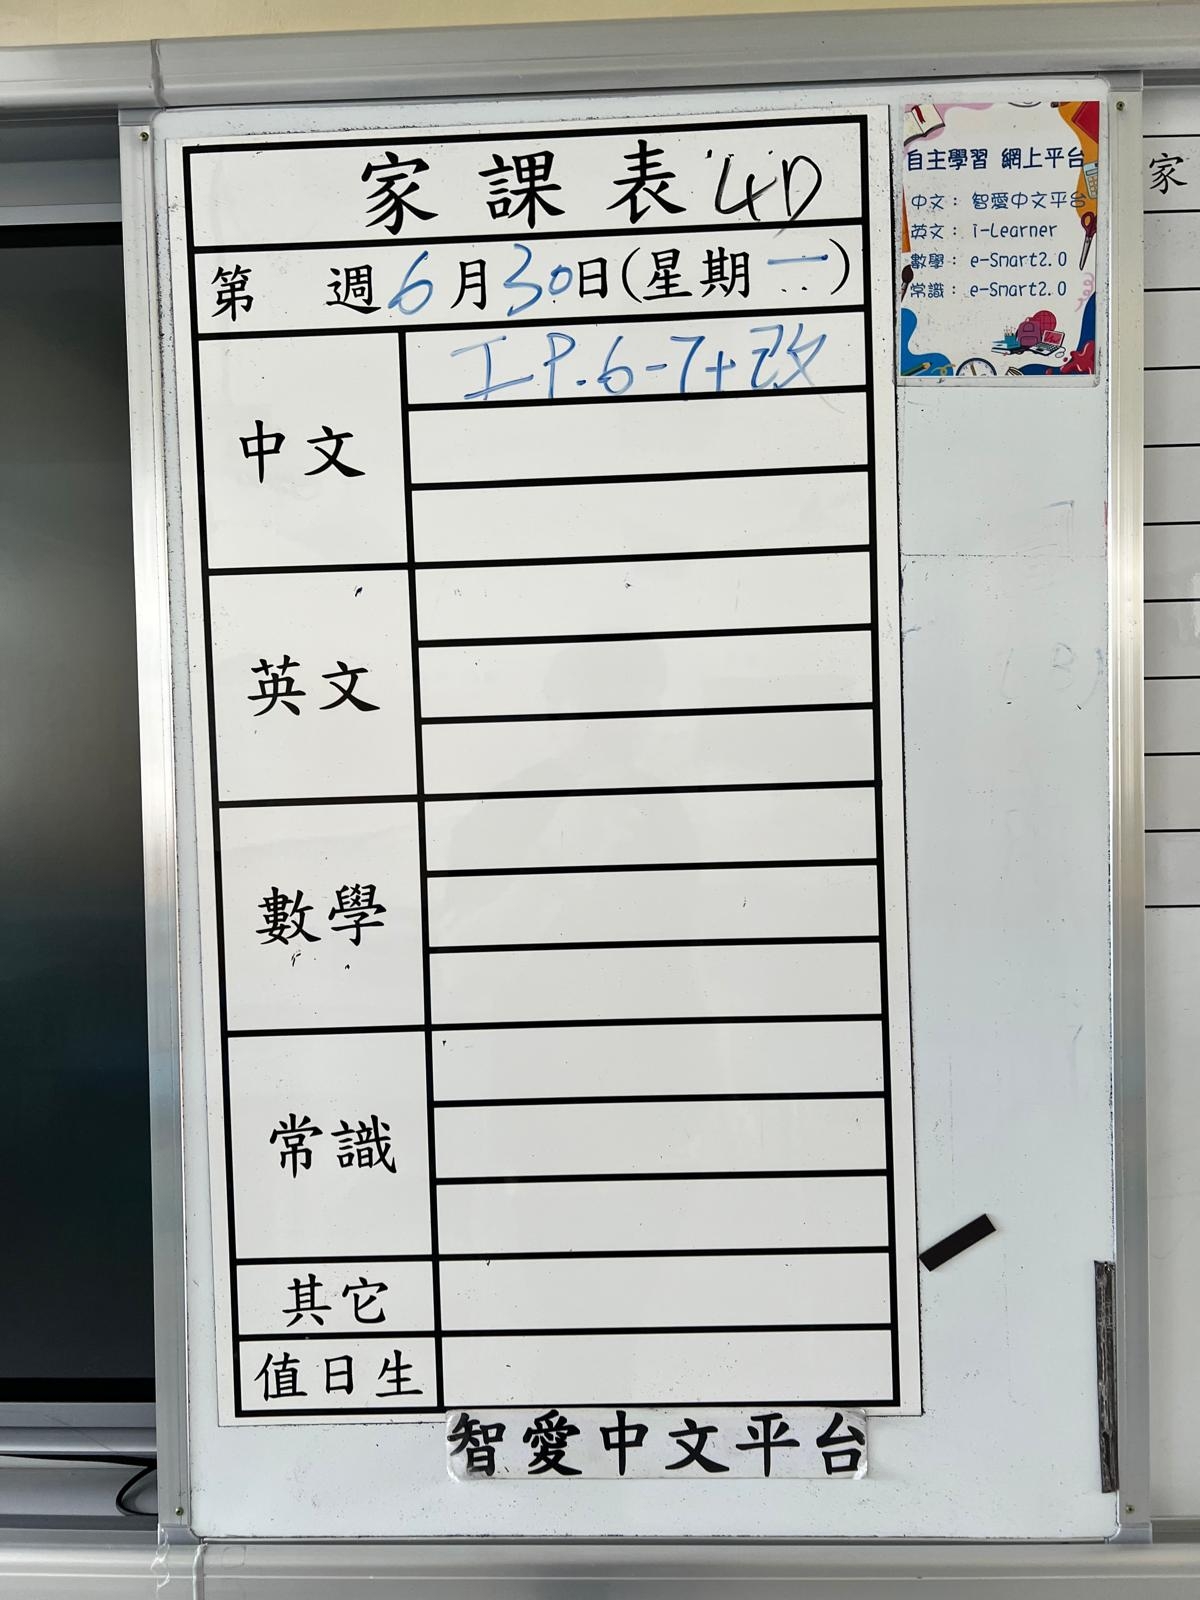 家課表 4D
第 週 6月30日(星期一)
中文
工 P.6-7+改
英文
數學
常識
其它
值日生
智愛中文平台
自主學習 網上平台
中文： 智愛中文平台
英文： i-Learner
數學： e-Smart2.0
常識： e-Smart2.0
家